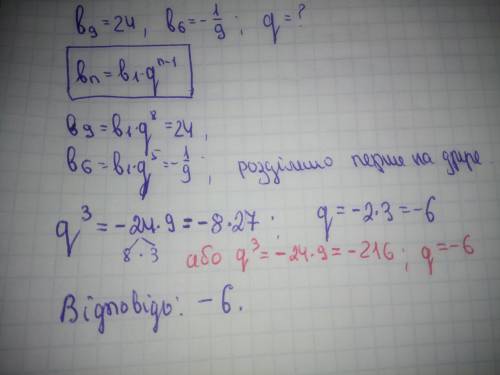 b₉ = 24, b₆ = -1/9; q = ?
bₙ = b₁·qⁿ⁻¹
b₉ = b₁·q⁸ = 24,
b₆ = b₁·q⁵ = -1/9; розділимо перше на друге
q³ = -24·9 = -8·27; q = -2·3 = -6
8·3
або q³ = -24·9 = -216; q = -6
Відповідь: -6.